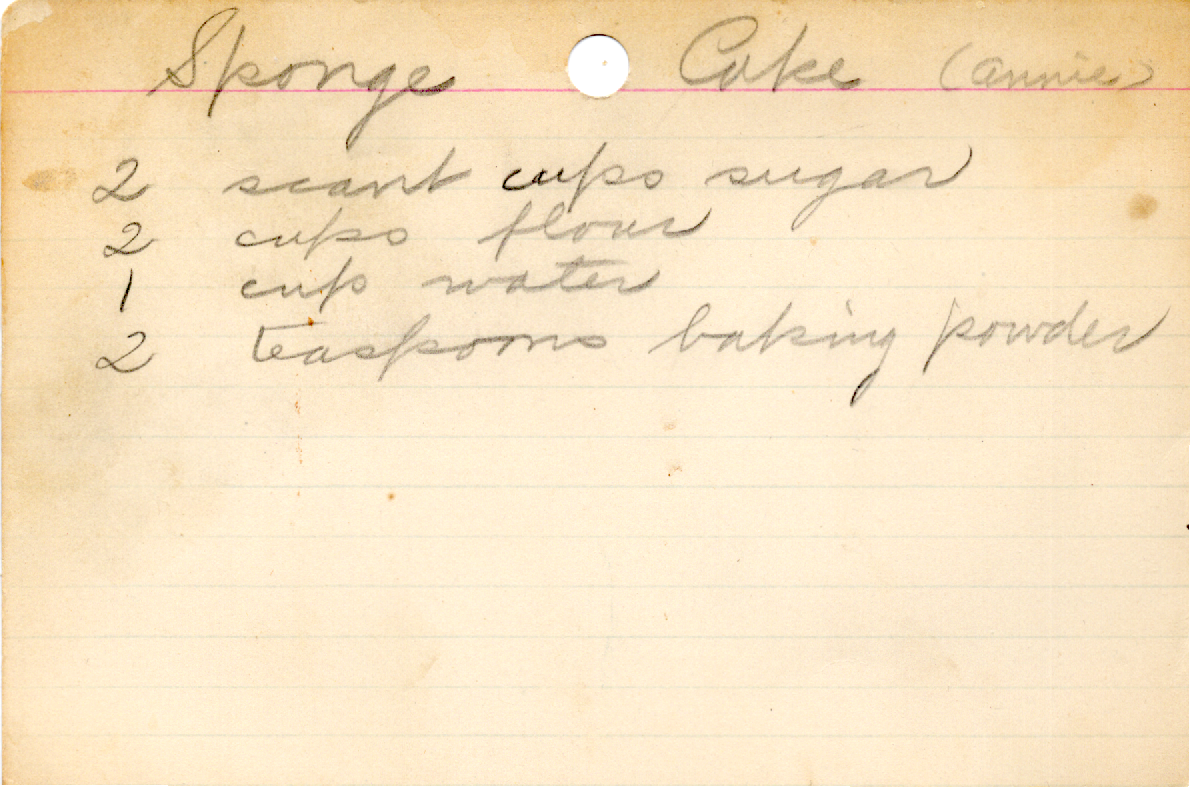 Sponge Cake (Annie)
2 scant cups sugar
2 cups flour
1 cup water
2 teaspoons baking powder